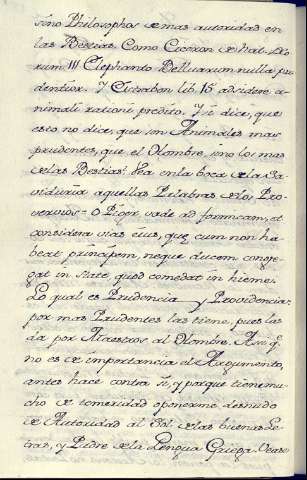 sino Philosophos de mas autoridad en
las Bestias. Como Ciceron de Nat. Deo
rum III Elephanto Belluarum nulla pru
dentior. Y Estrabon lib 15 ad
nimali rationi predito. Y si dice, que
esto no dice que son Animales mas
prudentes, que el Hombre, sino los mas
de las Bestias. Vea en la boca de la Sa
viduria aquellas Palabras de los Pro
verbios = O Piger vade ad formicam, et
considera vias eius, que cum non ha
beat principem, neque ducem congre
gat in state quod comedat in hieme.
Lo qual es Prudencia y Providencia:
por mas Prudentes las tiene, pues las
da por Maestros al Hombre. Asi q.
no es de importancia el Argumento,
antes hace contra si, y porque tiene mu
cho de temeridad oponerme desnudo
de Autoridad al Sol de las buenas Le
tras, y Padre de la Lengua Griega.